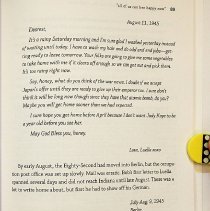 "all of us can live happy now" 89
August 11, 1945
Dearest,
It's a rainy Saturday morning and I'm sure glad I washed yesterday instead
of waiting until today. I have to wash my hair and do odd and jobs—get
ring ready to leave tomorrow. Your folks are going to give me some vegetables
to take home with me if it clears off enough so we can get out and pick them.
It's too rainy right now.
Say, honey, what do you think of the war news. I doubt if we accept
Japan's offer until they are ready to give up their emperor too. I sure don't
think it will be long now though since they have that atomic bomb, do you?
Maybe you will get home sooner than we had expected.
I sure hope you get home before April because I don't want Judy Kaye to be
a year old before you see her.
May God Bless you, honey.
Love, Luella xoxo
By early August, the Eighty-Second had moved into Berlin, but the occupa-
tion post office was set up slowly. Mail was erratic. Bob's first letter to Luella
spanned several days and did not reach Indiana until late August. There was a
lot to write home about, but first he had to show off his German.
July Aug 9, 1945
Berlin